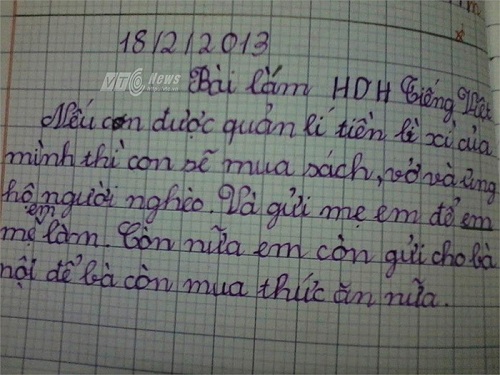 18/2/2013
VTC News
Bài làm HDH Tiếng Việt
Nếu con được quản lí tiền lì xì của
mình thì con sẽ mua sách, vở và ủng
hộ người nghèo. Và gửi mẹ em để em
mẹ làm. Còn nữa em còn gửi cho bà
nội để bà còn mua thức ăn nữa.